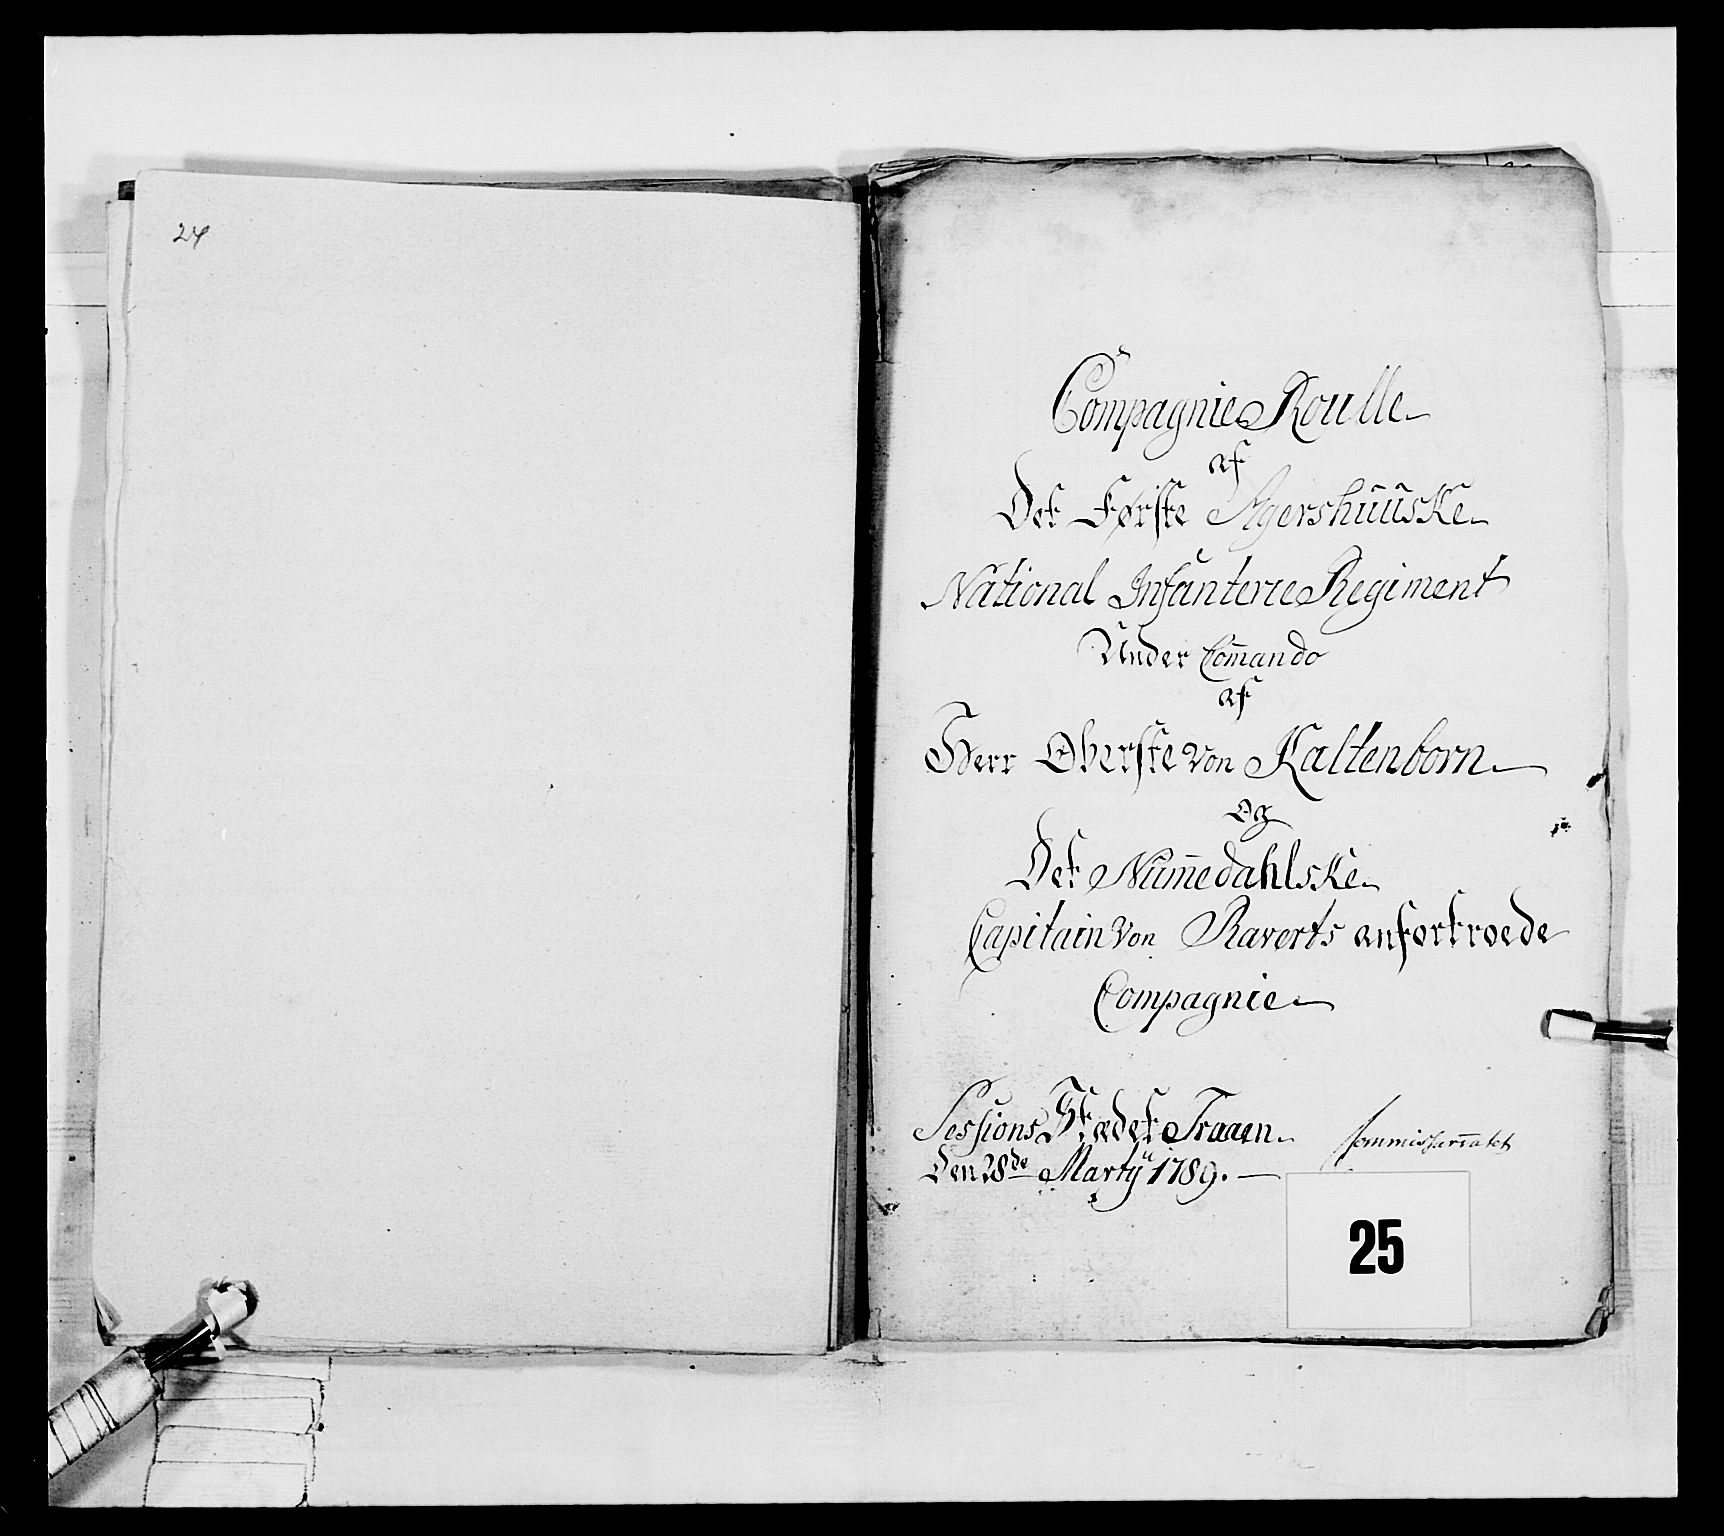 24
Compagnie Roulle
af
Det Første Agershuuske
National Infanterie Regiment
Under Com̄ando
af
Herr Oberste von Kaltenborn
og
Det Num̄edahlske
Capitain von Raverts anfortroede
Compagnie
Sessions Stædet Traaen
Commissariatet
Den 28de Martij 1789.
25